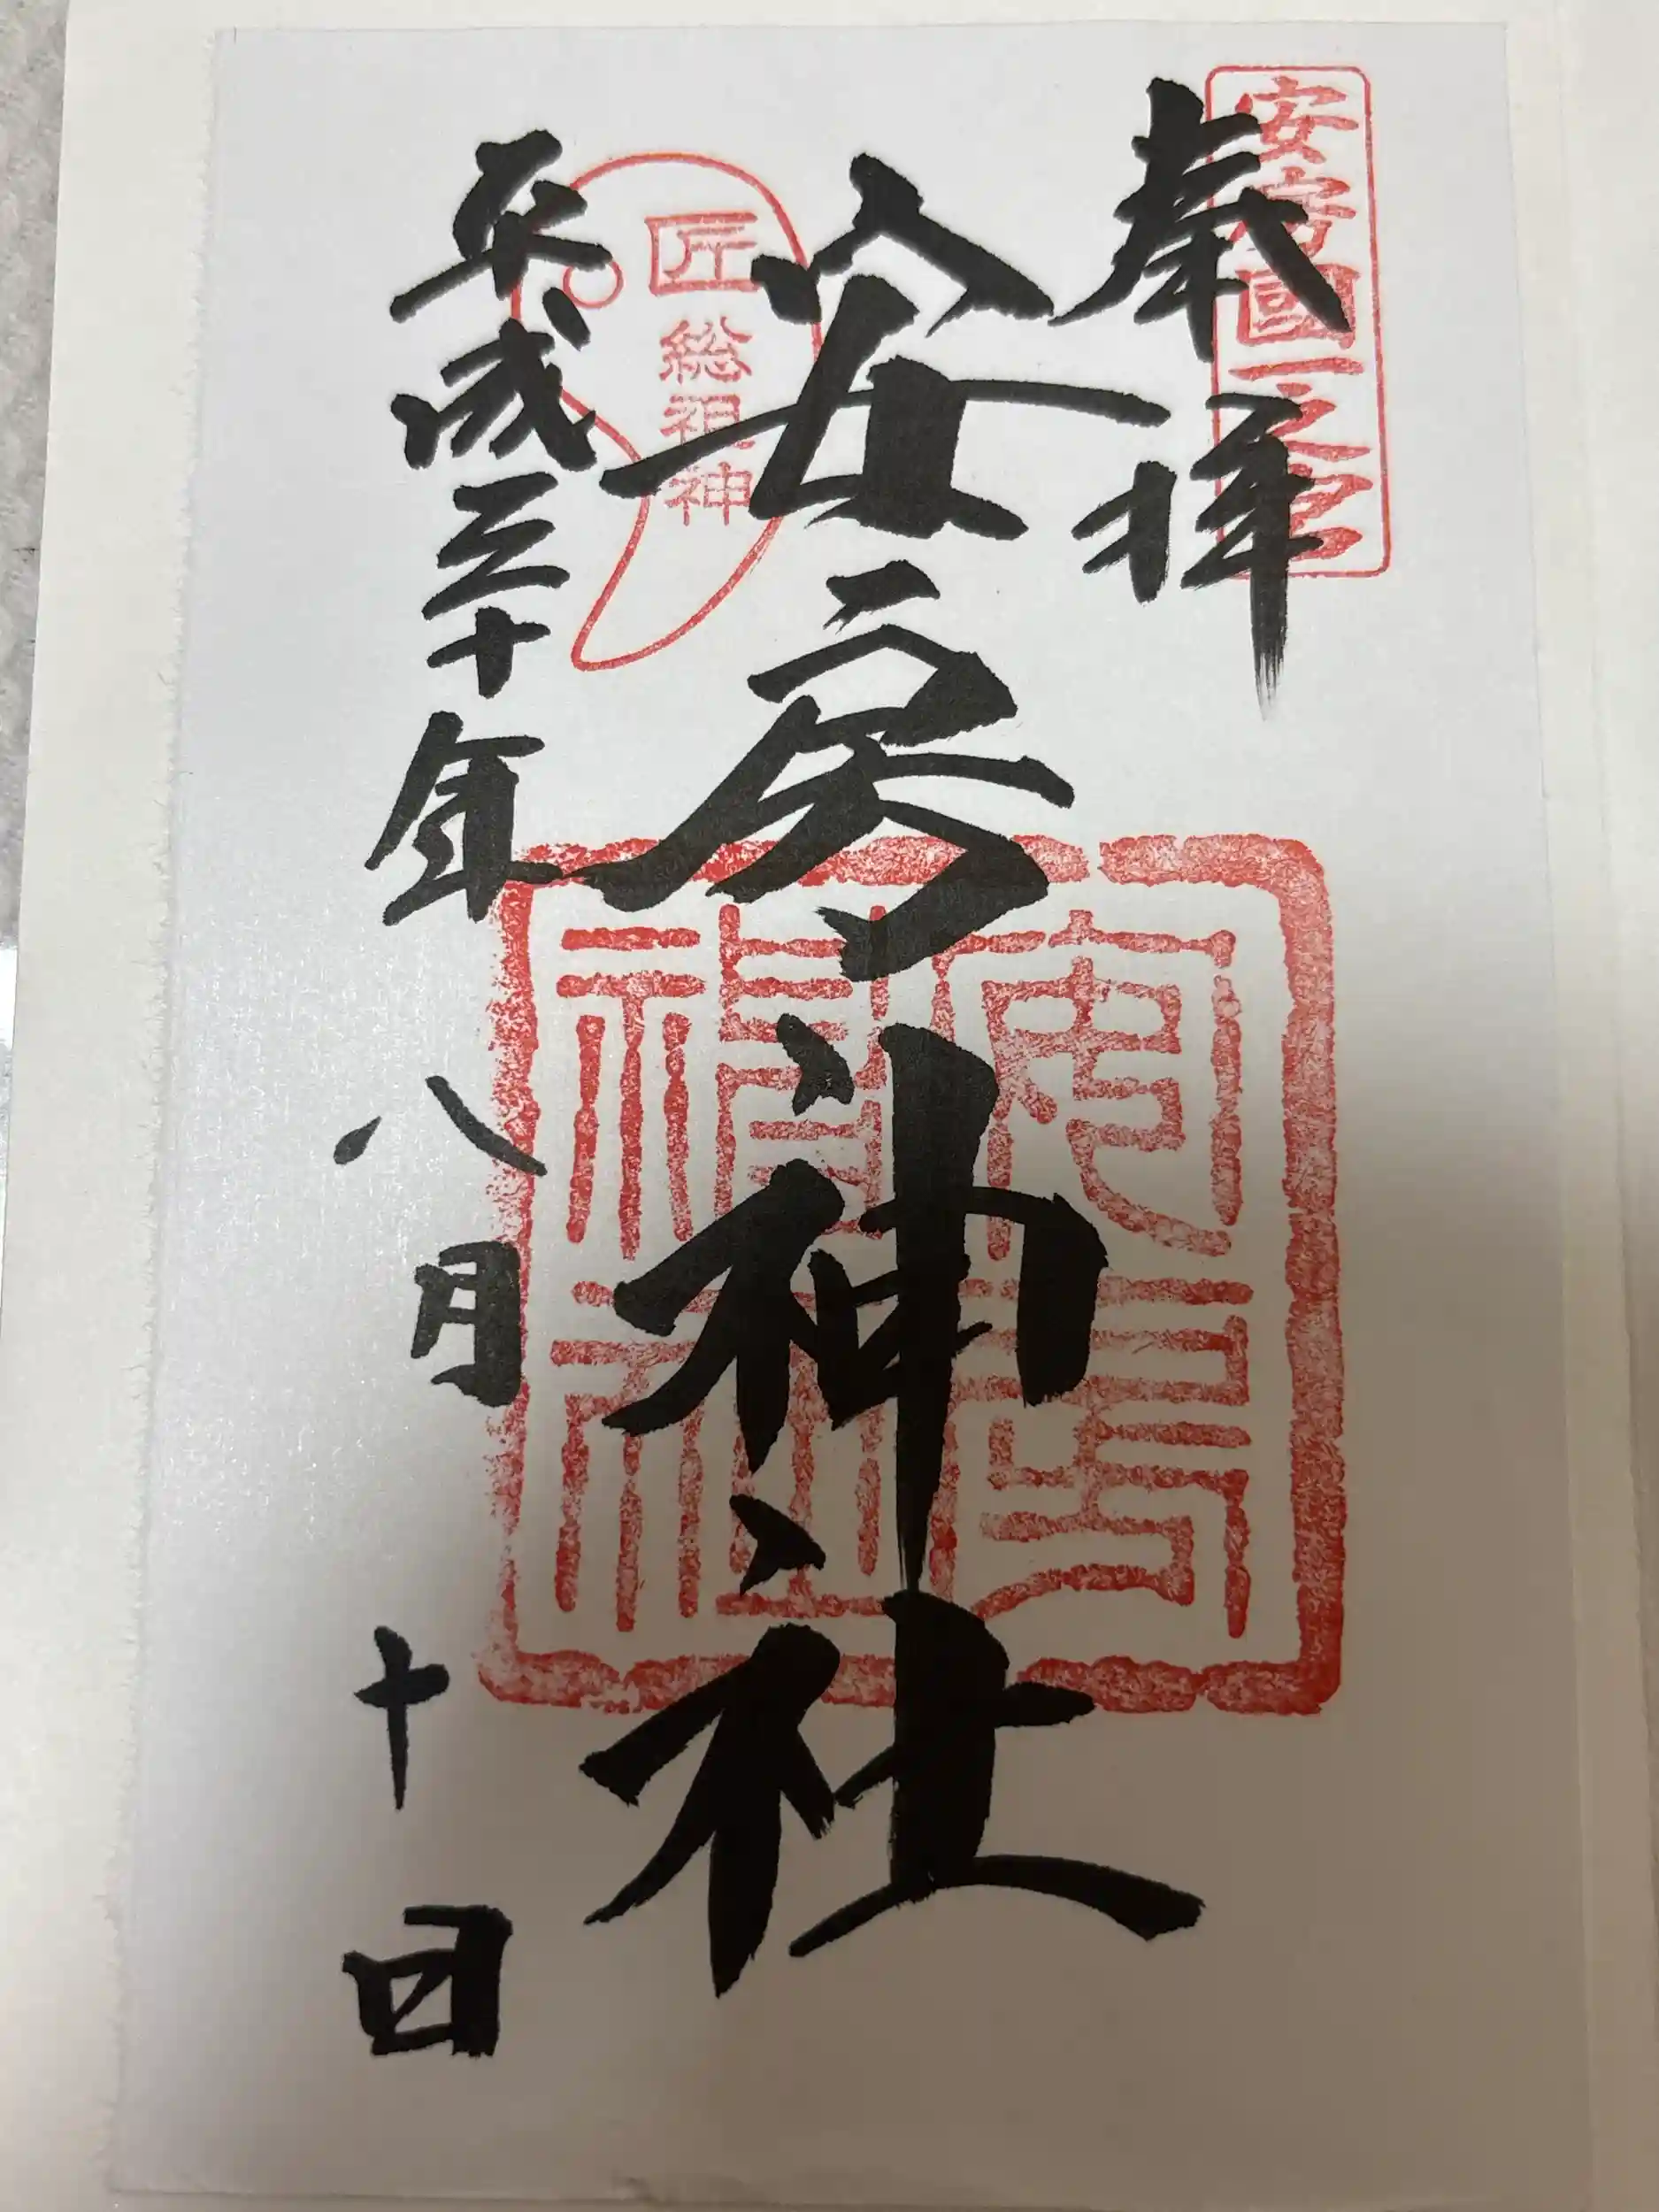 安房國一之宮
奉拝
安房神社
安房神社
匠
総祖神
平成三十年
八月
十日